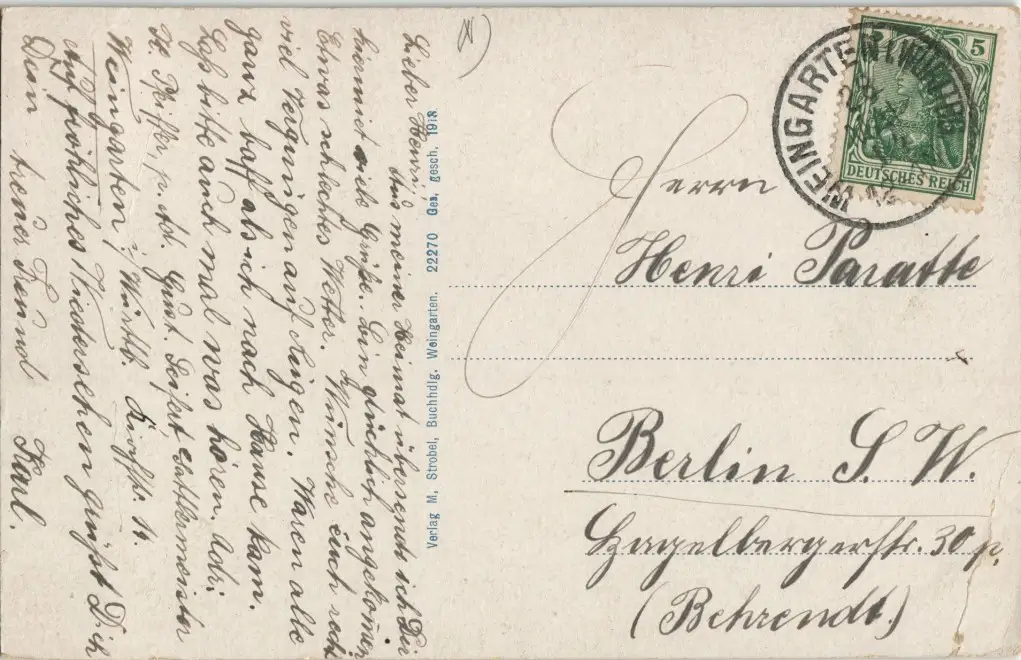 Lieber Henri!
Aus meiner Heimat übersende ich Dir
hiermit viele Grüße. Bin glücklich angekommen.
Etwas schlechtes Wetter. Wünsche Euch recht
viel Vergnügen auf Rügen. Waren alle
ganz baff als ich nach Hause kam.
Laß bitte auch mal was hören. Adr:
K. Pfiffer, Gust. Seifert, Sattlermeister
Weingarten i/ Württb. 14.
Auf fröhliches Wiedersehen grüßt Dich
Dein treuer Freund Karl.
Verlag M. Strobel, Buchhdlg. Weingarten. 22270 Ges. gesch. 1913
WEINGARTEN (WÜRTTB)
5 5
DEUTSCHES REICH
Herrn
Henri Paratte
Berlin S.W.
Hagelbergerstr. 30 p.
(Behrendt.)